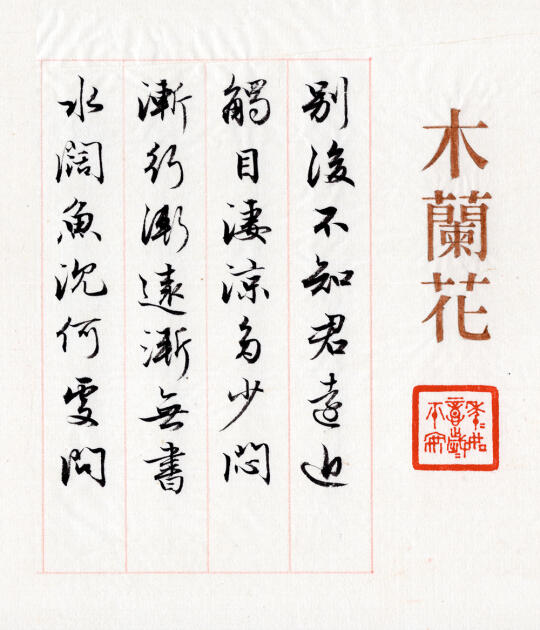 木蘭花
別後不知君遠近
觸目淒涼多少悶
漸行漸遠漸無書
水闊魚沈何處問